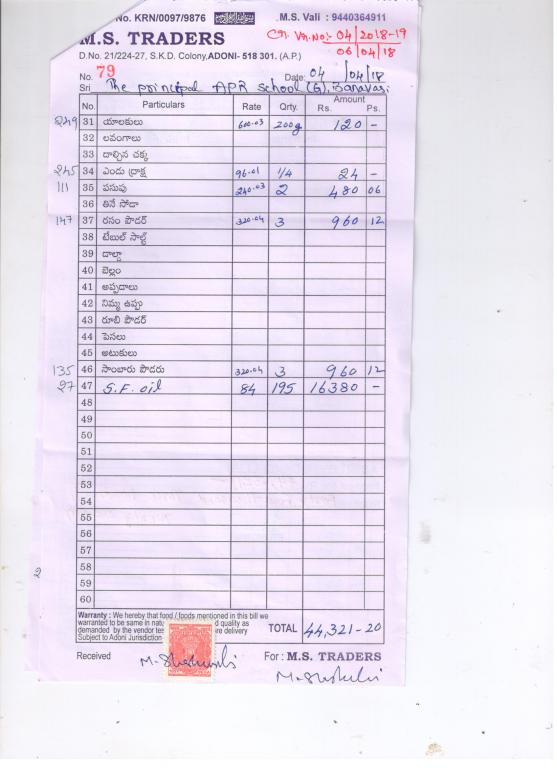 No. KRN/0097/9876 M.S. Vali : 9440364911
M.S. TRADERS Cr. Vr. No:- 04/2018-19
06/04/18
D.No. 21/224-27, S.K.D. Colony, ADONI- 518 301. (A.P.)
No. 79 Date: 04/04/18
Sri The principal APR School (G), Banavasi
No. Particulars Rate Qrty. Amount Rs. Ps.
249 31 యాలకులు 600.03 200g 120 -
32 లవంగాలు
33 దాల్చిన చక్క
245 34 ఎండు ద్రాక్ష 96.01 1/4 24 -
111 35 పసుపు 240.03 2 480 06
36 తినే సోడా
147 37 రసం పౌడర్ 320.04 3 960 12
38 టేబుల్ సాల్ట్
39 డాల్డా
40 బెల్లం
41 అప్పడాలు
42 నిమ్మ ఉప్పు
43 రూబి పౌడర్
44 పెసలు
45 అటుకులు
135 46 సాంబారు పౌడరు 320.04 3 960 12
27 47 S.F. oil 84 195 16380 -
48
49
50
51
52
53
54
55
56
57
2 58
59
60
Warranty : We hereby that food / foods mentioned in this bill we
warranted to be same in d quality as
demanded by the vendor re delivery
Subject to Adoni Jurisdiction
TOTAL 44,321-20
Received For : M.S. TRADERS